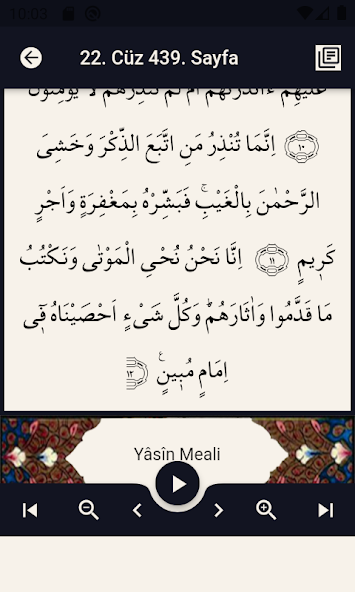 10:03
22. Cüz 439. Sayfa
عَلَيْهِمْ ءَاَنْذَرْتَهُمْ اَمْ لَمْ تُنْذِرْهُمْ لَا يُؤْمِنُونَ
﴿١٠﴾ اِنَّمَا تُنْذِرُ مَنِ اتَّبَعَ الذِّكْرَ وَخَشِىَ
الرَّحْمٰنَ بِالْغَيْبِۚ فَبَشِّرْهُ بِمَغْفِرَةٍ وَاَجْرٍ
كَرٖيمٍ ﴿١١﴾ اِنَّا نَحْنُ نُحْىِ الْمَوْتٰى وَنَكْتُبُ
مَا قَدَّمُوا وَاٰثَارَهُمْؕ وَكُلَّ شَىْءٍ اَحْصَيْنَاهُ فٖٓى
اِمَامٍ مُبٖينٍࣖ ﴿١٢﴾
Yâsîn Meali